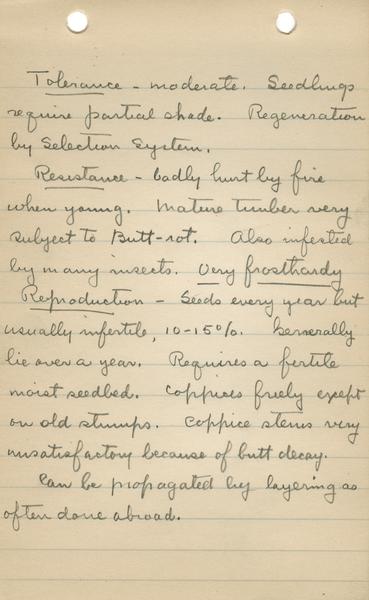 Tolerance - moderate. Seedlings
require partial shade. Regeneration
by Selection System.
Resistance - badly hurt by fire
when young. Mature timber very
subject to Butt-rot. Also infested
by many insects. Very frosthardy
Reproduction - Seeds every year but
usually infertile, 10-15%. Generally
lie over a year. Requires a fertile
moist seedbed. Coppices freely except
on old stumps. Coppice stems very
unsatisfactory because of butt decay.
Can be propagated by layering as
often done abroad.